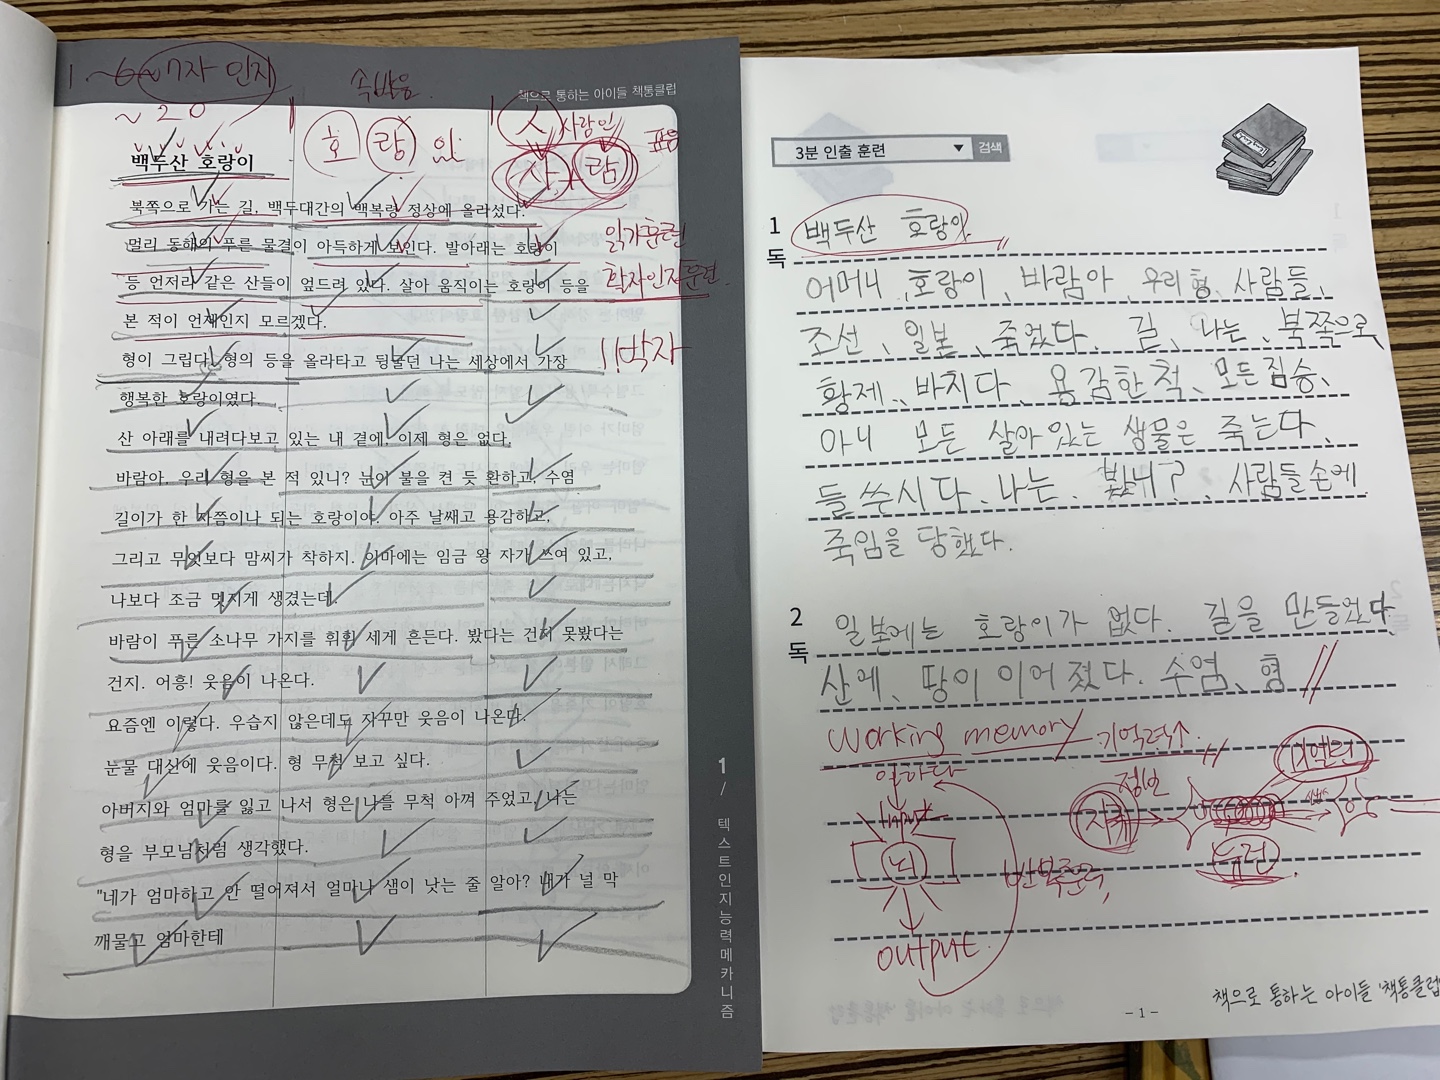 1. ~6~7자 인지
~20
속발음
책으로 통하는 아이들 책통클럽
호 랑 인
사 사람인
사 + 람
표음
백두산 호랑이
북쪽으로 가는 길, 백두대간의 백복령 정상에 올라섰다.
멀리 동해의 푸른 물결이 아득하게 보인다. 발아래는 호랑이
등 언저리 같은 산들이 엎드려 있다. 살아 움직이는 호랑이 등을
본 적이 언제인지 모르겠다.
형이 그립다. 형의 등을 올라타고 뒹굴던 나는 세상에서 가장
행복한 호랑이였다.
산 아래를 내려다보고 있는 내 곁에, 이제 형은 없다.
바람아, 우리 형을 본 적 있니? 눈에 불을 켠 듯 환하고, 수염
길이가 한 자쯤이나 되는 호랑이야. 아주 날쌔고 용감하고,
그리고 무엇보다 맘씨가 착하지. 이마에는 임금 왕 자가 쓰여 있고,
나보다 조금 멋지게 생겼는데.
바람이 푸른 소나무 가지를 휘휘 세게 흔든다. 봤다는 건지 못봤다는
건지. 어흥! 웃음이 나온다.
요즘엔 이렇다. 우습지 않은데도 자꾸만 웃음이 나온다.
눈물 대신에 웃음이다. 형 무척 보고 싶다.
아버지와 엄마를 잃고 나서 형은 나를 무척 아껴 주었고, 나는
형을 부모님처럼 생각했다.
"네가 엄마하고 안 떨어져서 얼마나 샘이 낫는 줄 알아? 내가 널 막
깨물고 엄마한테
읽기훈련
활자인지훈련
11박자
1 / 텍스트인지능력메카니즘
3분 인출 훈련 검색
1독
백두산 호랑이
어머니, 호랑이, 바람아, 우리 형, 사람들,
조선, 일본, 죽었다. 길, 나는, 북쪽으로
황제, 바치다, 용감한 척, 모든 짐승,
아니 모든 살아있는 생물은 죽는다,
들쑤시다, 나는, 봤니?, 사람들 손에
죽임을 당했다.
2독
일본에는 호랑이가 없다. 길을 만들었다
산에, 땅이 이어졌다. 수염, 형
working memory 기억력↑
input
뇌
output
반복훈련
자극
기억력
뉴런
책으로 통하는 아이들 '책통클럽
- 1 -